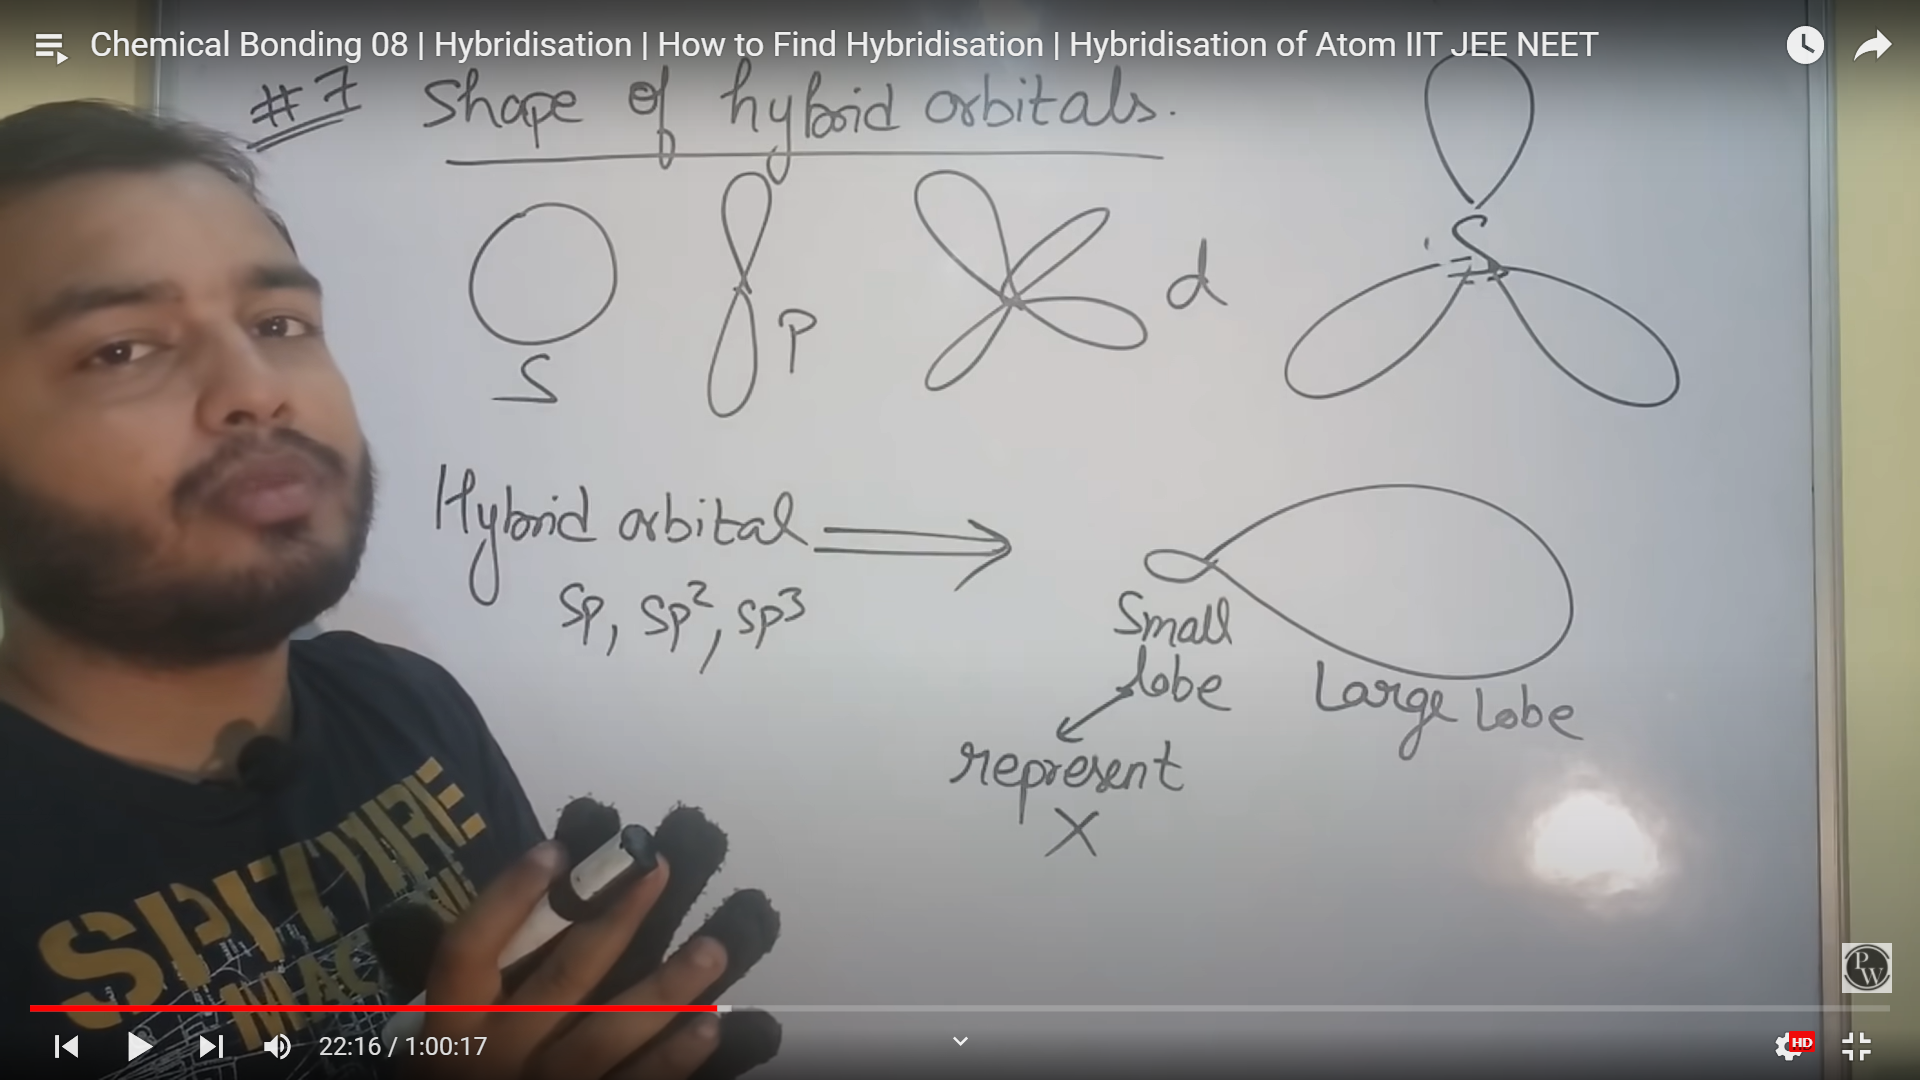 Chemical Bonding 08 | Hybridisation | How to Find Hybridisation | Hybridisation of Atom IIT JEE NEET
#7 Shape of hybrid orbitals.
S
P
d
S
Hybrid orbital
sp, sp², sp³
Small
lobe
Large Lobe
represent
X
SPITZIRE
PW
22:16 / 1:00:17
HD